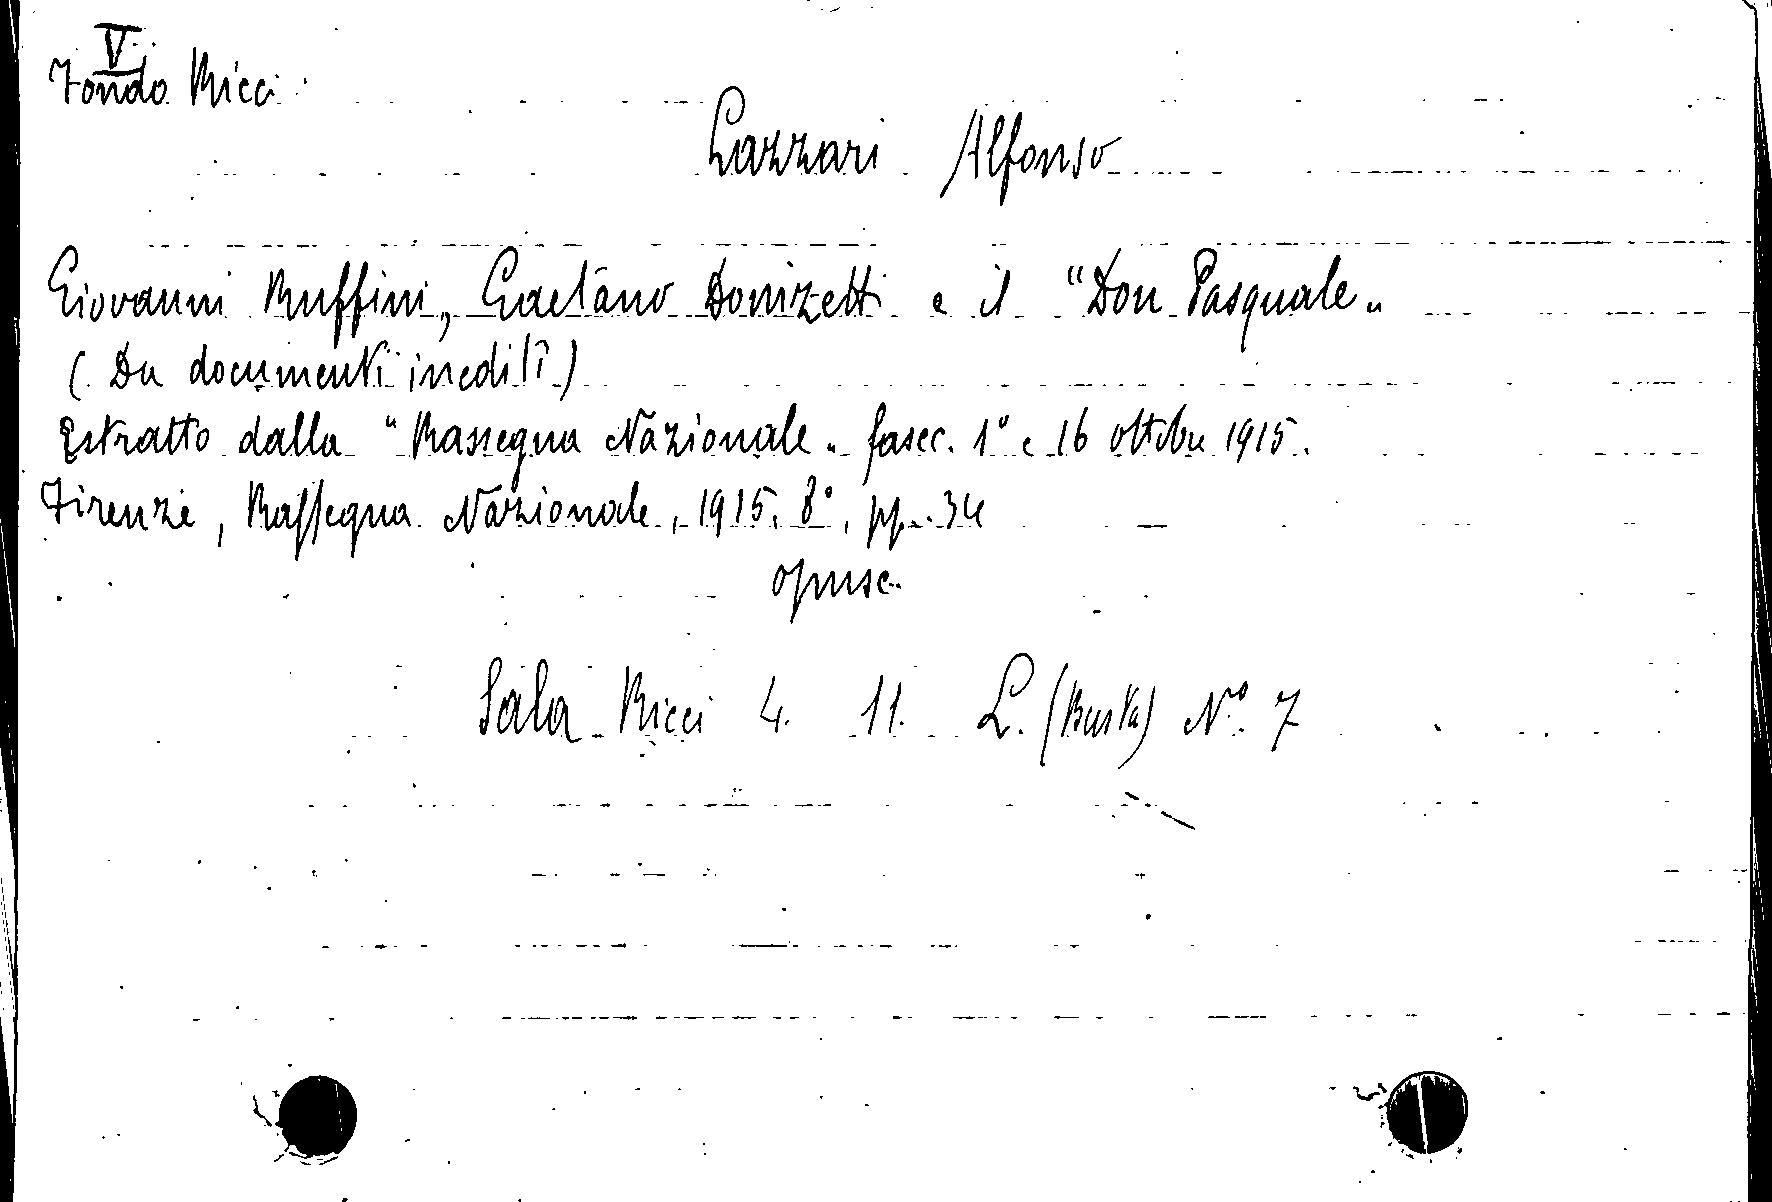 V
Fondo Ricci
Lazzari Alfonso
Giovanni Ruffini, Gaetano Donizetti e il "Don Pasquale"
(Da documenti inediti)
Estratto dalla "Rassegna Nazionale" fasec. 1° e 16 ottobre 1915.
Firenze, Rassegna Nazionale, 1915, 8°, pp. 34
opusc.
Sala Ricci 4. 11. L. (Busta) N° 7